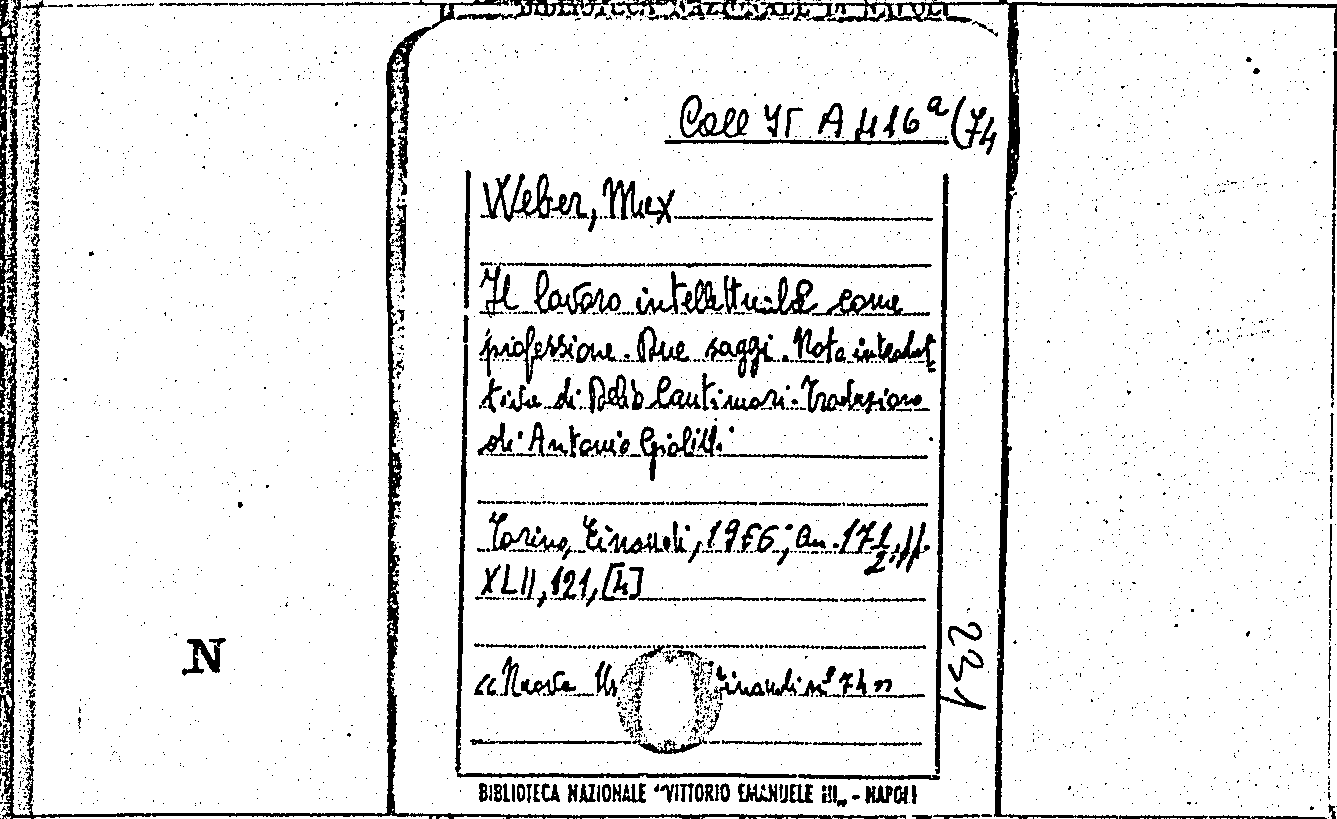 BIBLIOTECA NAZIONALE DI NAPOLI
Coll. It A 416ª (74
Weber, Max
Il lavoro intellettuale come
professione. Due saggi. Nota introdut
tiva di Delio Cantimori. Traduzione
di Antonio Giolitti
Torino, Einaudi, 1966; an. 17 1/2, pp.
XLII, 121, [4]
«Nuova Einaudi n° 74»
231
N
BIBLIOTECA NAZIONALE "VITTORIO EMANUELE III„ - NAPOLI